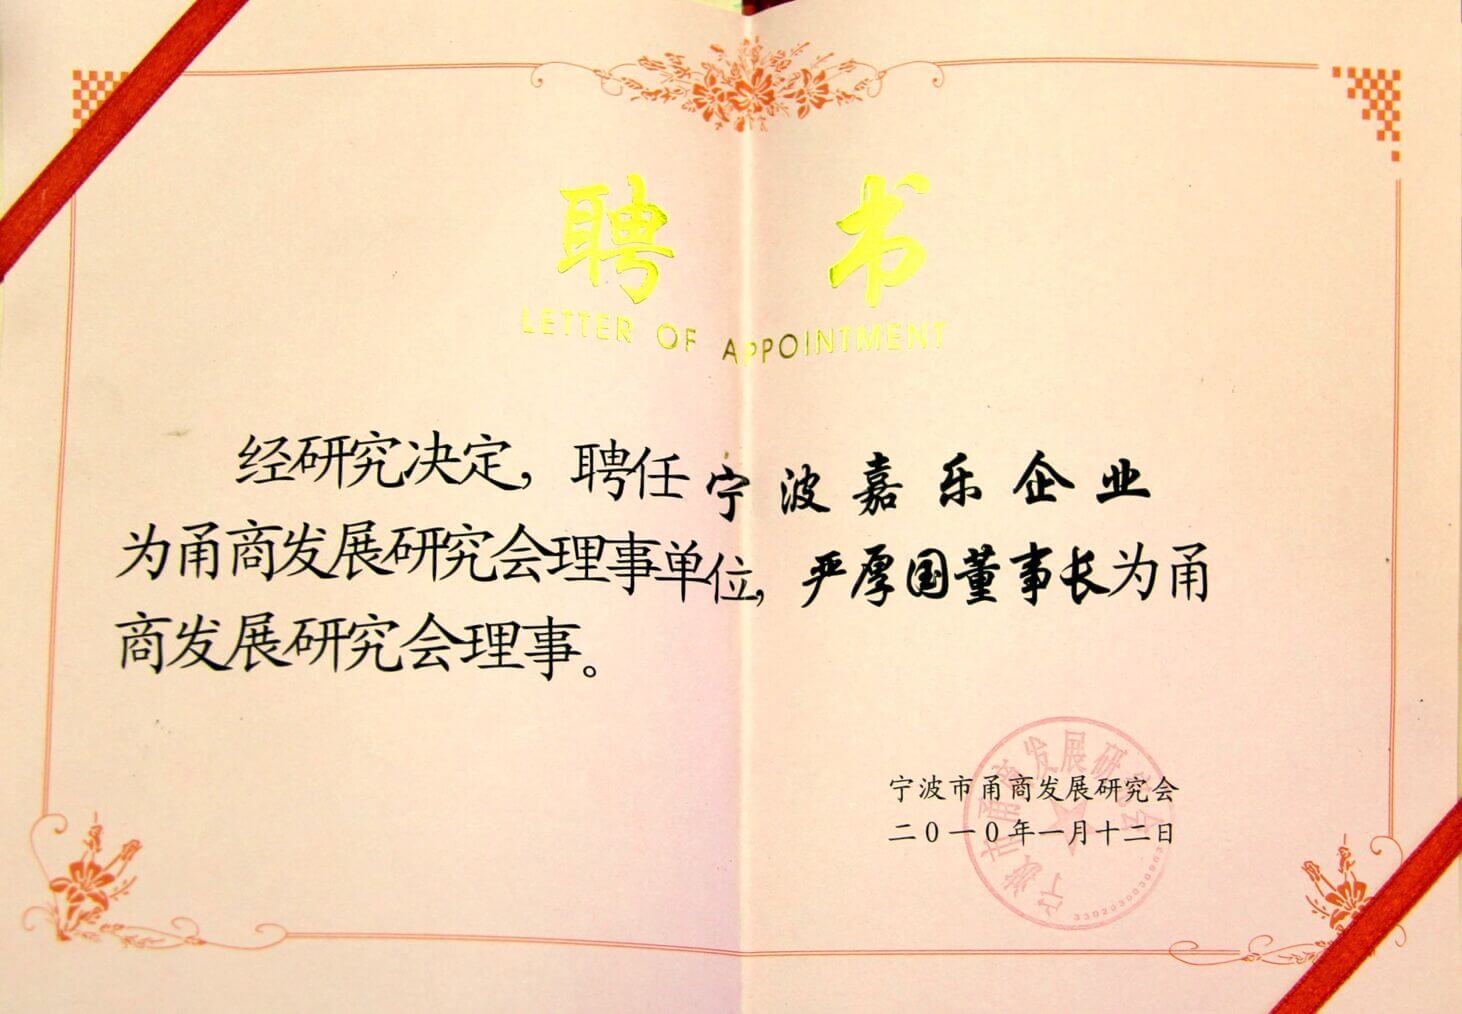 聘 书
LETTER OF APPOINTMENT
经研究决定，聘任宁波嘉乐企业
为甬商发展研究会理事单位，严厚国董事长为甬
商发展研究会理事。
宁波市甬商发展研究会
宁波市甬商发展研究会
二〇一〇年一月十二日